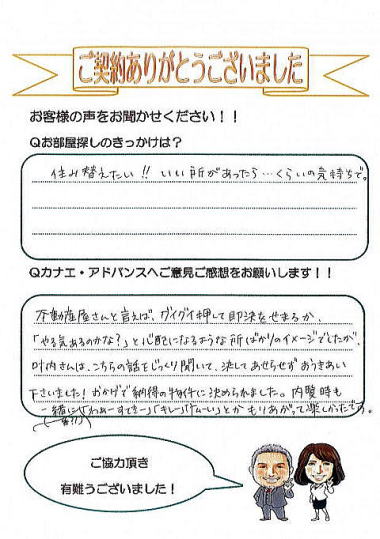 ご契約ありがとうございました
お客様の声をお聞かせください！！
Qお部屋探しのきっかけは？
住み替えたい!! いい所があったら…くらいの気持ちで。
Qカナエ・アドバンスへご意見ご感想をお願いします！！
不動産屋さんと言えば、グイグイ押して即決をせまるか、
「やる気あるのかな?」と心配になるような所ばかりのイメージでしたが、
叶内さんは、こちらの話をじっくり聞いて、決してあせらせずおつきあい
下さいました! おかげで納得の物件に決められました。内覧時も
一緒に「わぁーすてきー」「キレー」「ムーい」とか もりあがって楽しかったです。
ご協力頂き
有難うございました！